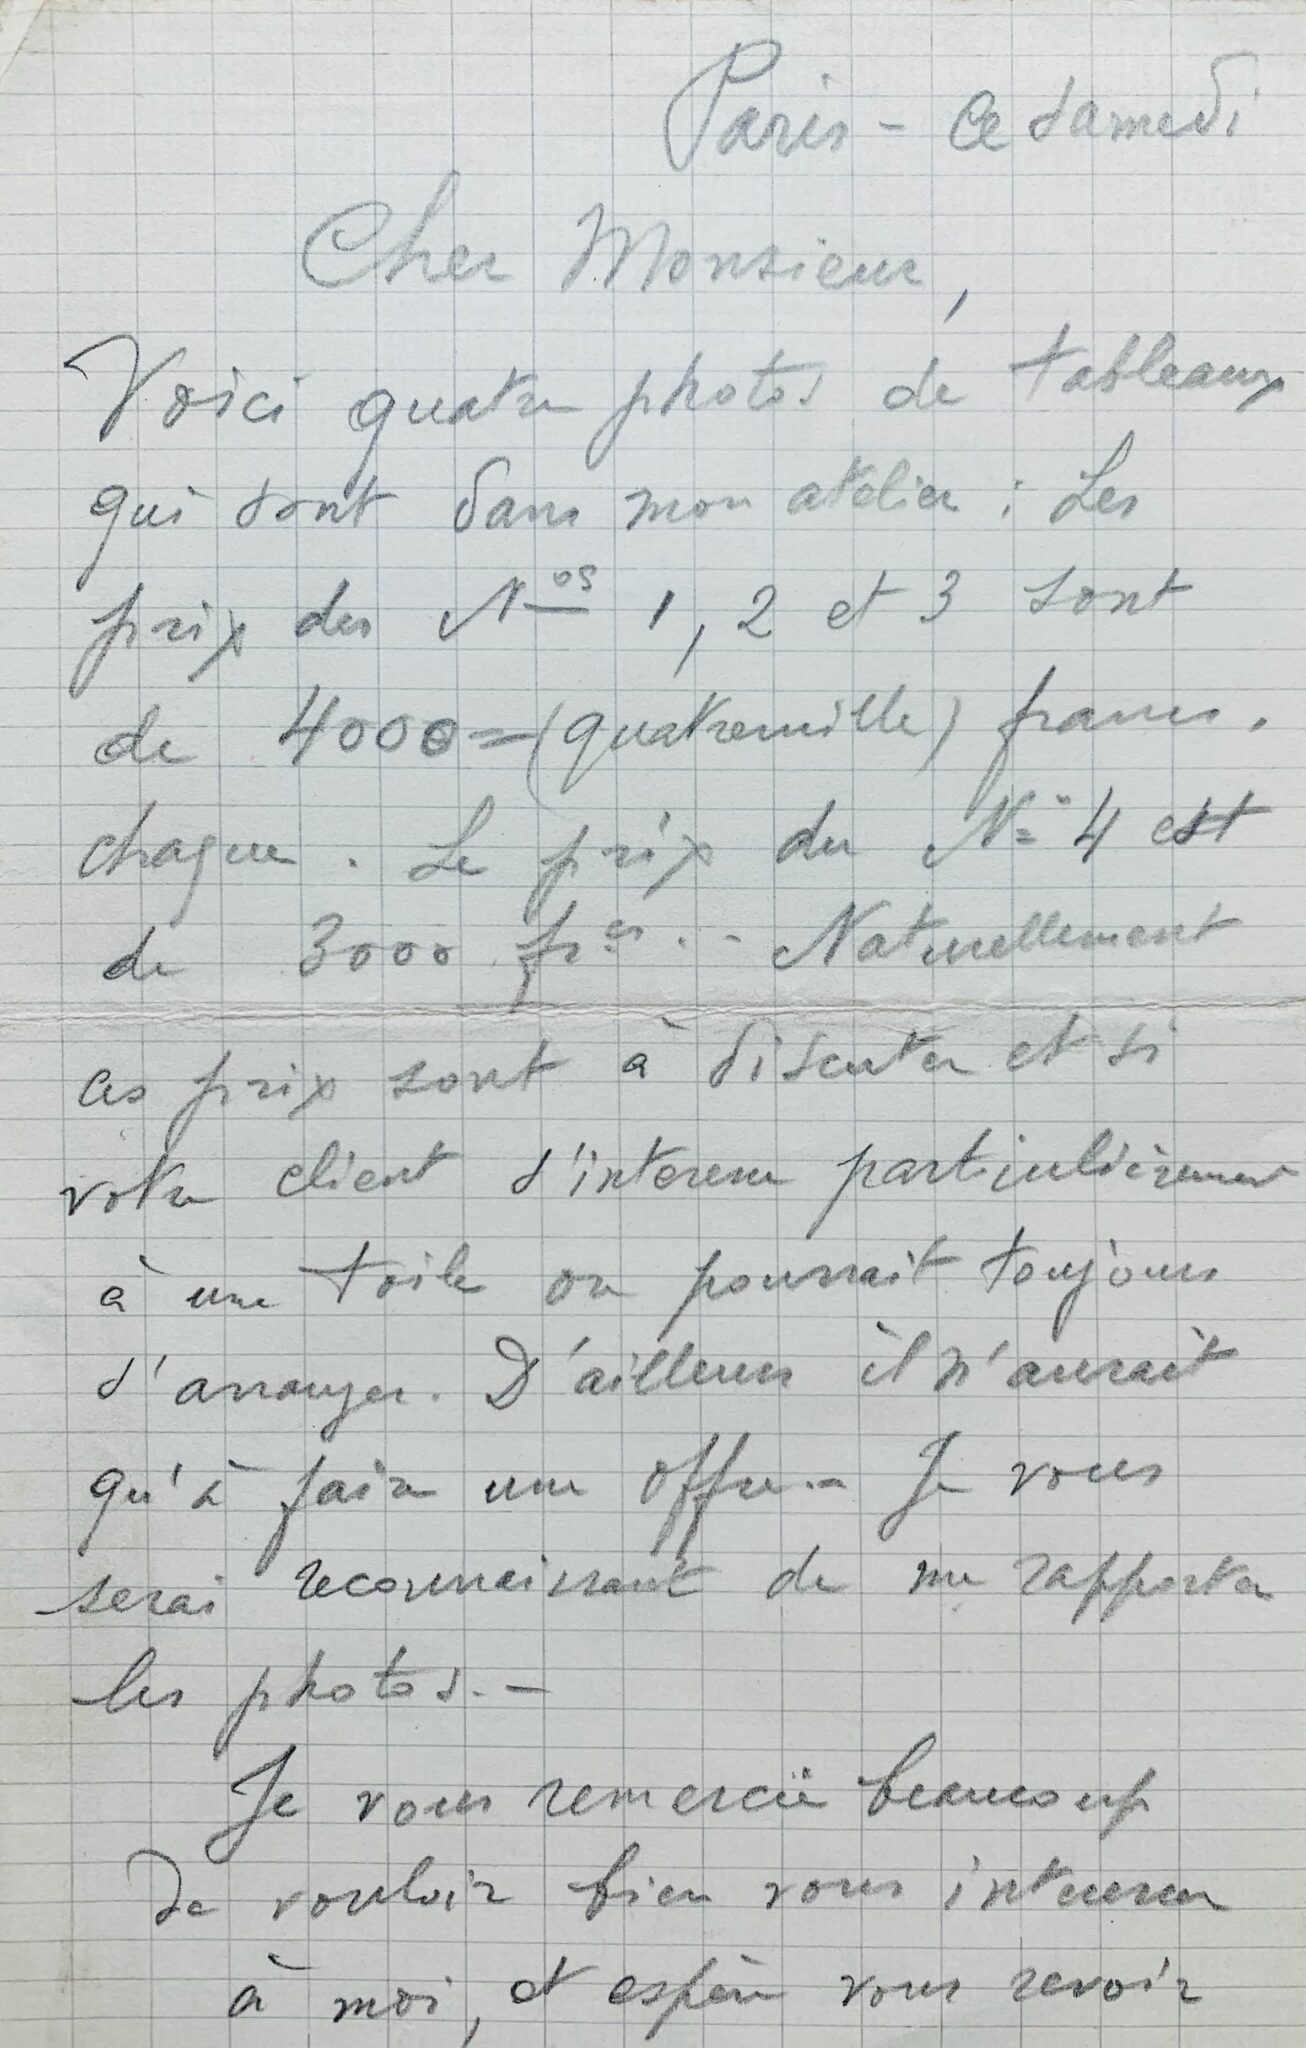 Paris - ce samedi
Cher Monsieur,
Voici quatre photos de tableaux
qui sont dans mon atelier : Les
prix des Nos 1, 2 et 3 sont
de 4000 = (quatremille) francs.
chaque. Le prix du No 4 est
de 3000 frcs. - Naturellement
ces prix sont à discuter et si
votre client s'interesse particulièrement
à une toile on pourrait toujours
s'arranger. D'ailleurs il n'aurait
qu'à faire une offre. - Je vous
serai reconnaissant de me rapporter
les photos. -
Je vous remercie beaucoup
de vouloir bien vous interesser
à moi, et espère vous revoir